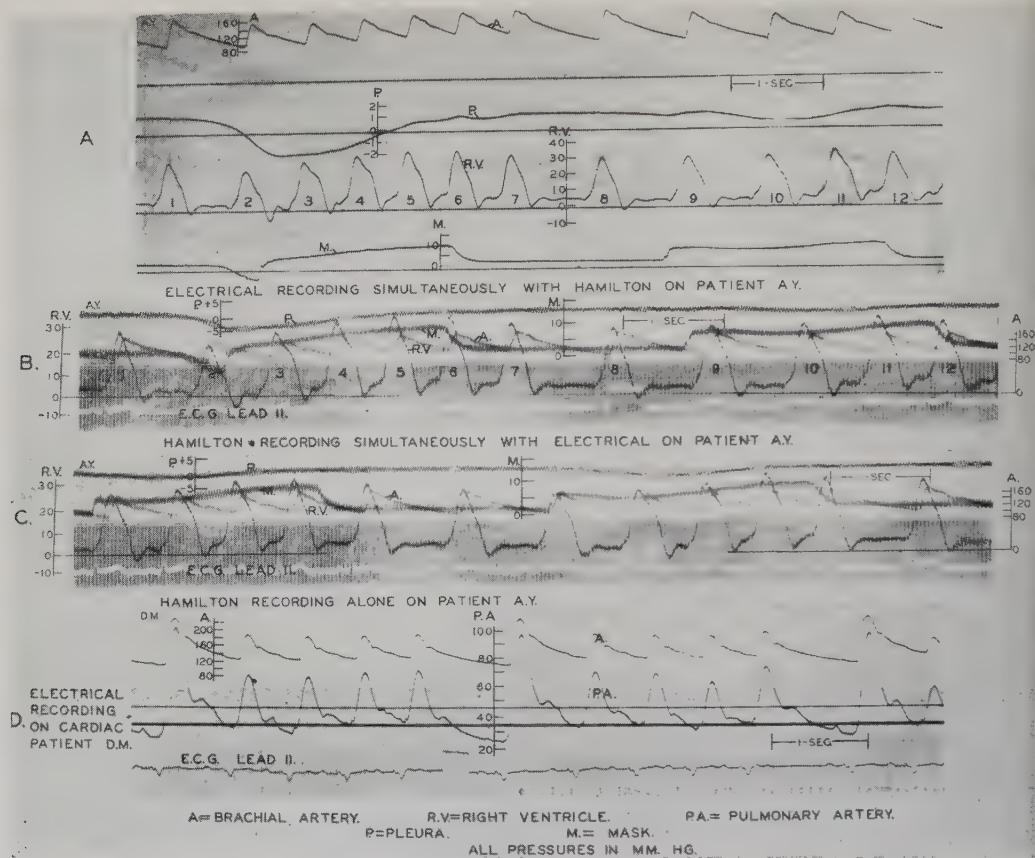 A.Y.
160
120
80
A
A.
1-SEC
P.
2
1
0
-1
-2
P.
A
R.V.
40
30
20
10
0
-10
R.V.
1 2 3 4 5 6 7 8 9 10 11 12
M.
10
0
M.
ELECTRICAL RECORDING SIMULTANEOUSLY WITH HAMILTON ON PATIENT A.Y.
R.V. A.Y. P+5 M. A
30
20
10
0
-10
10
0
160
120
80
0
P. M. A. R.V.
1 SEC
B.
1 2 3 4 5 6 7 8 9 10 11 12
E.C.G. LEAD II.
HAMILTON RECORDING SIMULTANEOUSLY WITH ELECTRICAL ON PATIENT A.Y.
R.V. A.Y. P+5 M. A.
30
20
10
0
-10
10
0
160
120
80
0
P. M. A. R.V.
-SEC
C.
E.C.G. LEAD II.
HAMILTON RECORDING ALONE ON PATIENT A.Y.
D.M. A P.A
200
160
120
80
100
80
60
40
20
A
P.A.
ELECTRICAL
RECORDING
D. ON CARDIAC
PATIENT D.M.
1-SEC
E.C.G. LEAD II.
A= BRACHIAL ARTERY. R.V.=RIGHT VENTRICLE. P.A.= PULMONARY ARTERY.
P=PLEURA. M.= MASK.
ALL PRESSURES IN MM. HG.